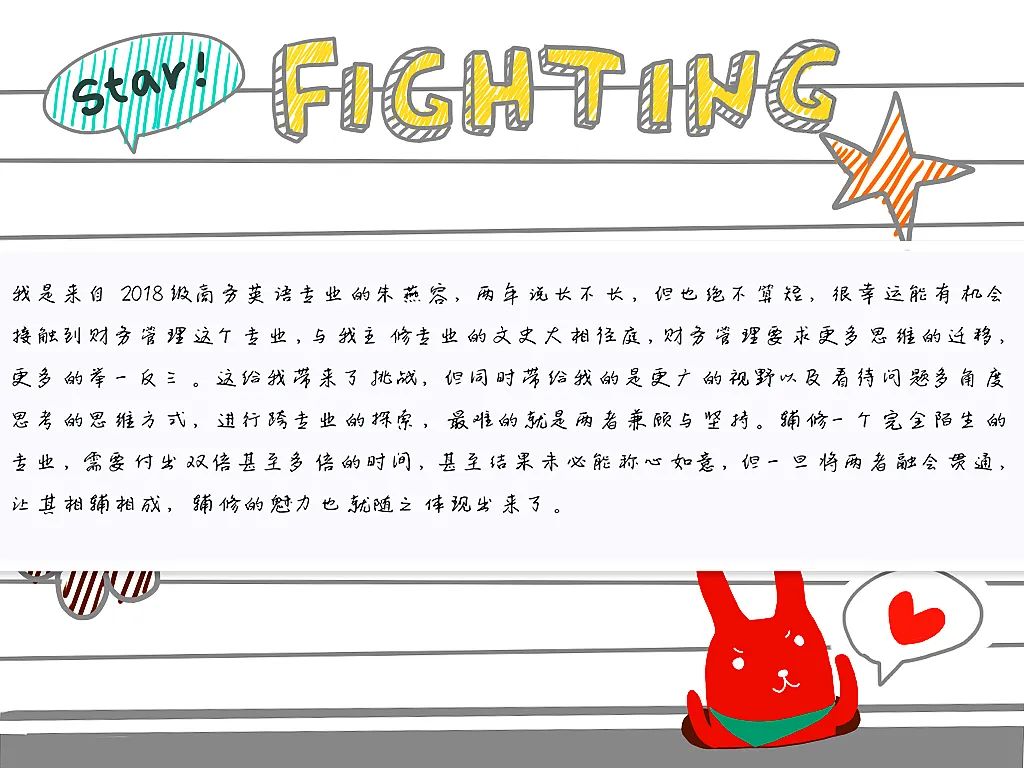 Star!
FIGHTING
我是来自 2018级商务英语专业的朱燕容，两年说长不长，但也绝不算短，很幸运能有机会
接触到财务管理这个专业，与我主修专业的文史大相径庭，财务管理要求更多思维的迁移，
更多的举一反三。这给我带来了挑战，但同时带给我的是更广的视野以及看待问题多角度
思考的思维方式，进行跨专业的探索，最难的就是两者兼顾与坚持。辅修一个完全陌生的
专业，需要付出双倍甚至多倍的时间，甚至结果未必能称心如意，但一旦将两者融会贯通，
让其相辅相成，辅修的魅力也就随之体现出来了。